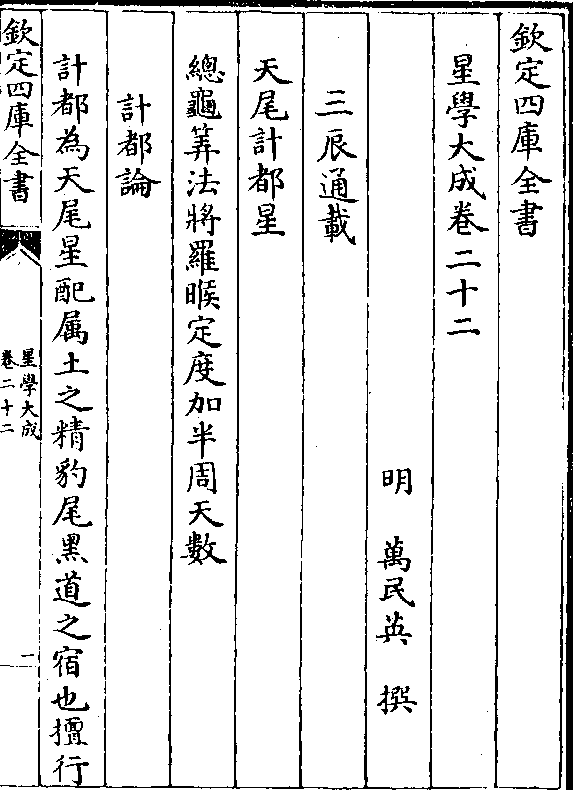 欽定四庫全書
星學大成卷二十二
明 萬民英 撰
三辰通載
天尾計都星
總龜筭法將羅㬋定度加半周天數
計都論
計都為天尾星配属土之精豹尾黑道之宿也擅行
欽定四庫全書
星學大成
卷二十二
一